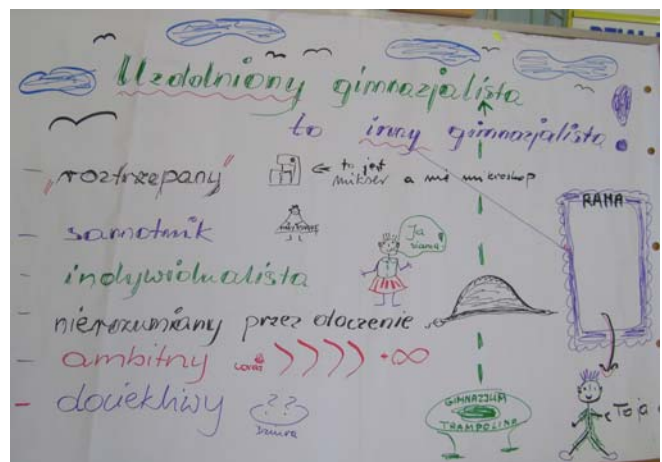 Uzdolniony gimnazjalista
to inny gimnazjalista!
- "roztrzepany"
← to jest
mikser a nie mikroskop
- samotnik
- indywidualista
Ja
siama
- nierozumiany przez otoczenie
- ambitny
+∞
- dociekliwy
? ?
Dziura
GIMNAZJUM
TRAMPOLINA
RAMA
← To ja